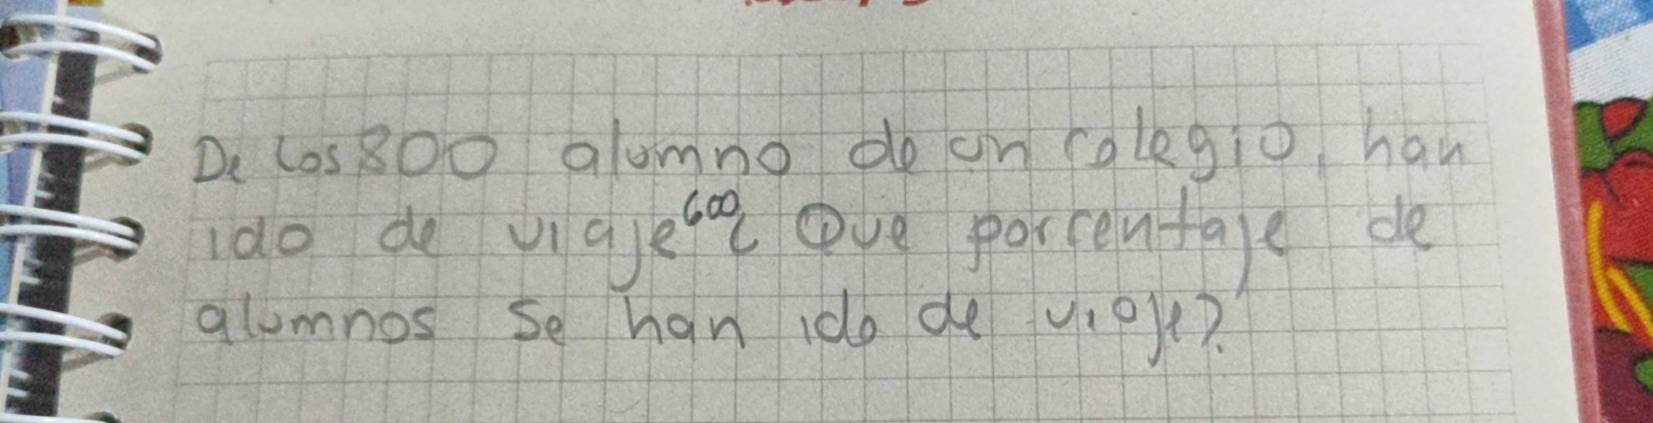 De los 800 alumno de un colegio, han
ido de viaje 600 ¿Que porcentaje de
alumnos se han ido de viaje?